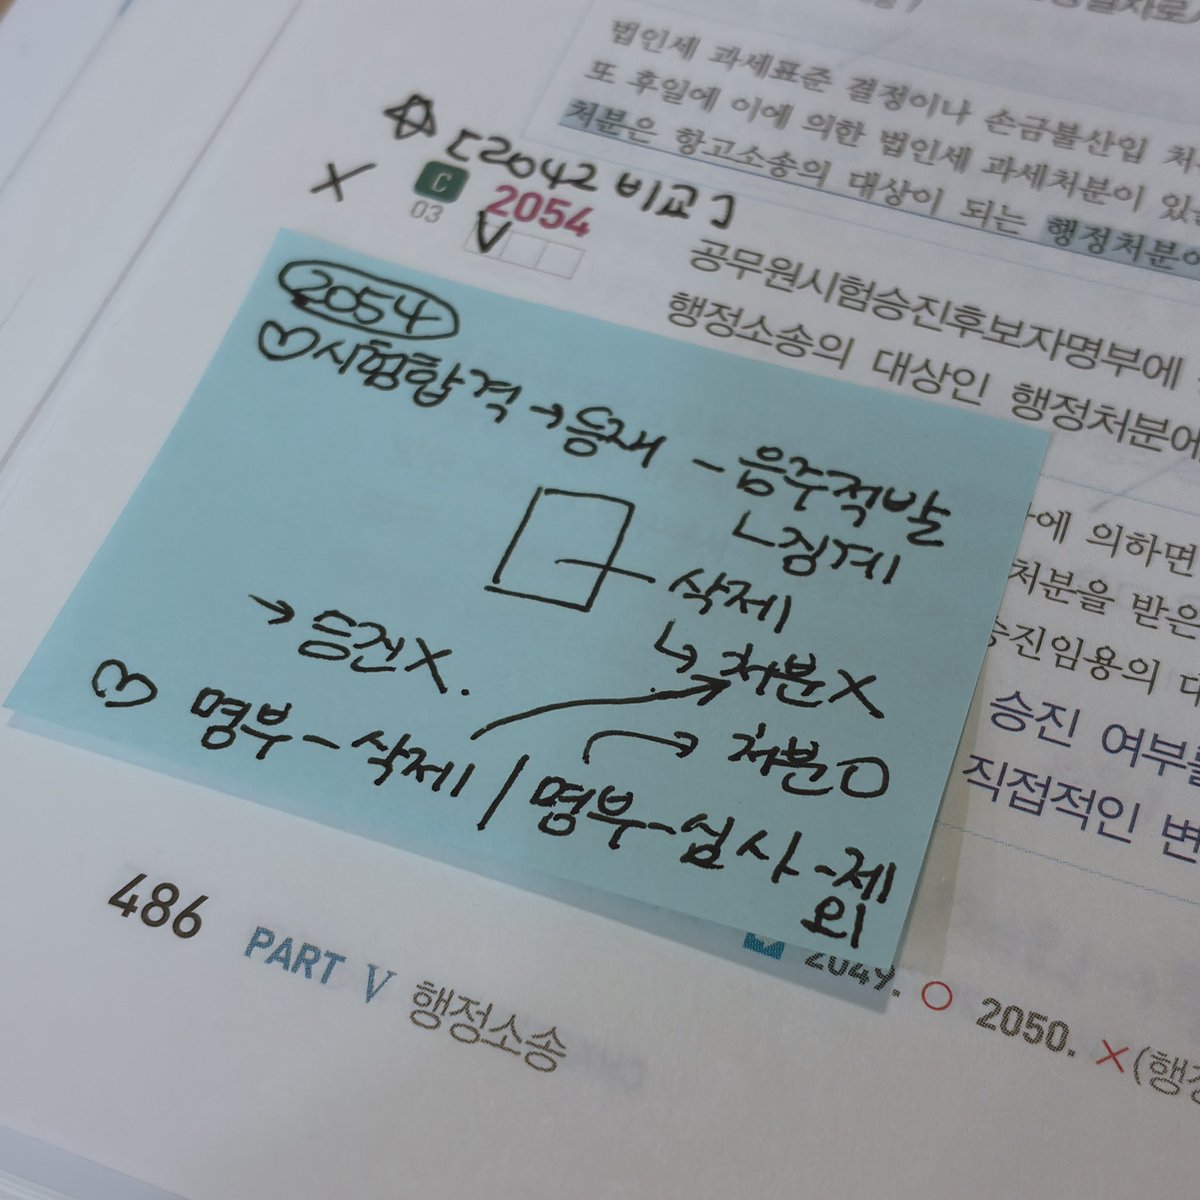 법인세 과세표준 결정이나 손금불산입 처
또 후일에 이에 의한 법인세 과세처분이 있
처분은 항고소송의 대상이 되는 행정처분이
[2042 비교]
X
C
03
2054
V
공무원시험승진후보자명부에
행정소송의 대상인 행정처분에
2054
시험합격 → 등재 - 음주적발
ㄴ징계
삭제
↳ 처분X
→ 등건X.
처분O
명부-삭제 / 명부-심사-제외
에 의하면
처분을 받은
승진임용의 대
승진 여부를
직접적인 변
2049. ○ 2050. ×(행정
486 PART V 행정소송